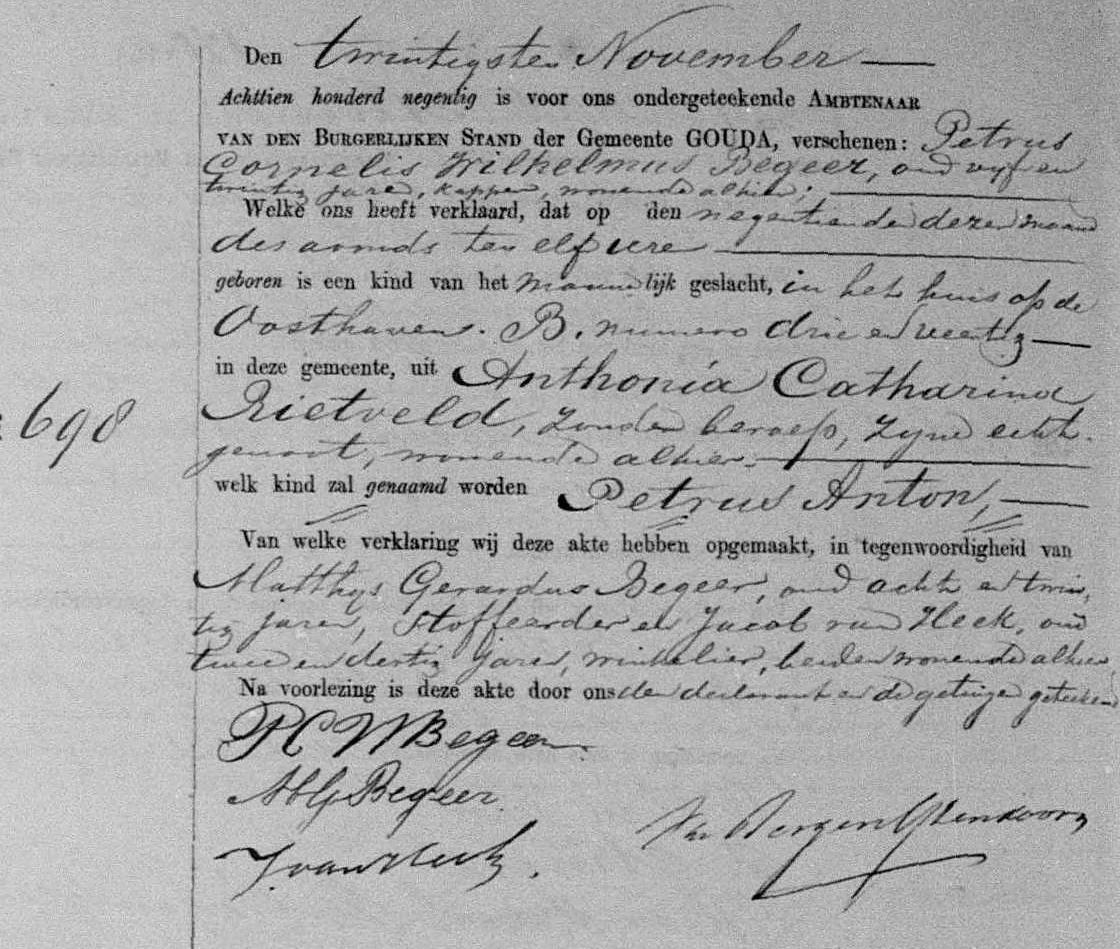 Den twintigsten November
Achttien honderd negentig is voor ons ondergeteekende AMBTENAAR
VAN DEN BURGERLIJKEN STAND der Gemeente GOUDA, verschenen: Petrus
Cornelis Wilhelmus Begeer, oud vijf en
twintig jaren, kapper, wonende alhier;
Welke ons heeft verklaard, dat op den negentienden dezer maand
des avonds ten elf ure
geboren is een kind van het mannelijk geslacht, in het huis op de
Oosthaven. B. numero drie en veertig
in deze gemeente, uit Anthonia Catharina
698
Rietveld, zonder beroep, zyne echt-
genoot, wonende alhier
welk kind zal genaamd worden Petrus Anton,
Van welke verklaring wij deze akte hebben opgemaakt, in tegenwoordigheid van
Matthys Gerardus Begeer, oud acht en twin
tig jaren, stoffeerder en Jacob van Heck, oud
twee en dertig jaren, winkelier, beiden wonende alhier
Na voorlezing is deze akte door ons den declarant en de getuigen geteekend
PCWBegeer
MGBegeer
J. van Heck.